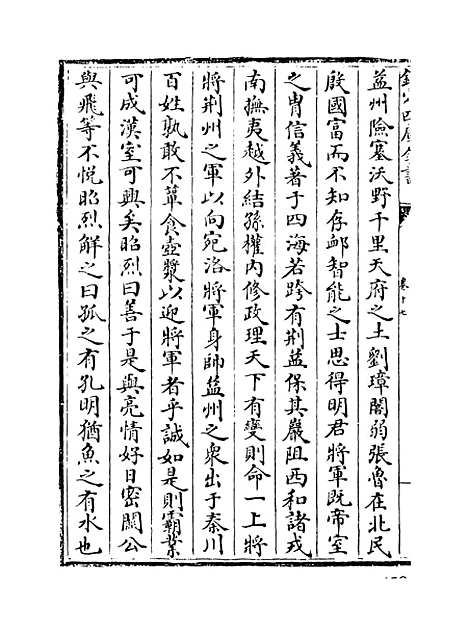 欽定四庫全書
卷十七
益州險塞沃野千里天府之土劉璋闇弱張魯在北民
殷國富而不知存邺智能之士思得明君將軍既帝室
之胄信義著于四海若跨有荆益保其巖阻西和諸戎
南撫夷越外結孫權内修政理天下有變則命一上將
將荆州之軍以向宛洛將軍身帥益州之衆出于秦川
百姓孰敢不簞食壺漿以迎將軍者乎誠如是則霸業
可成漢室可興矣昭烈曰善于是與亮情好日密關公
與飛等不悦昭烈解之曰孤之有孔明猶魚之有水也